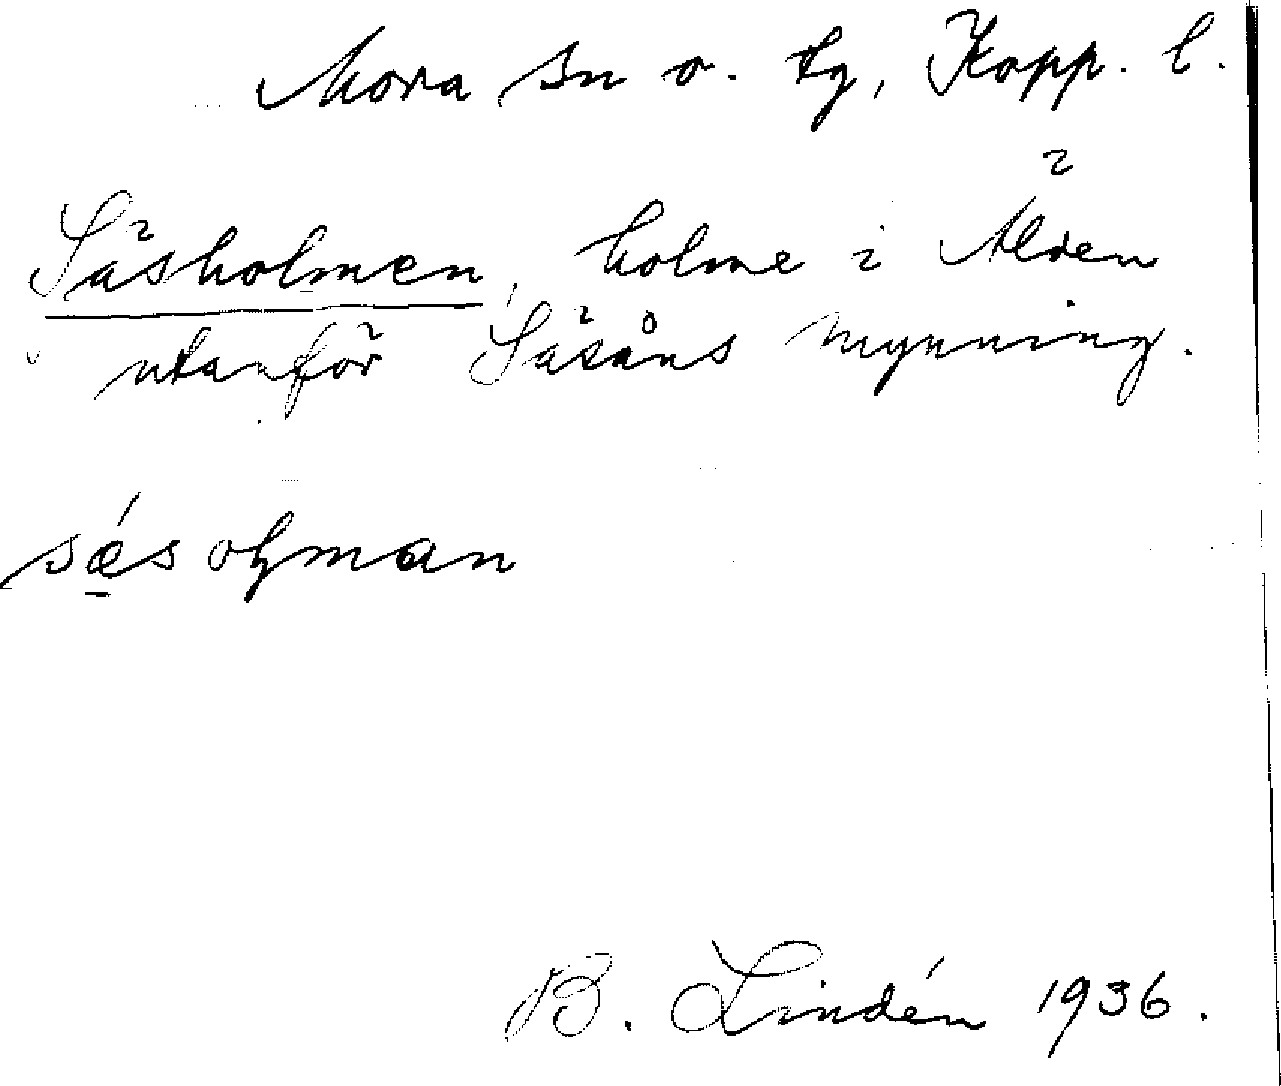 Mora sn o. tg, Kopp. l.
Säsholmen, holme i Älven
utanför Säsåns mynning.
sǽs oɫman
B. Lindén 1936.